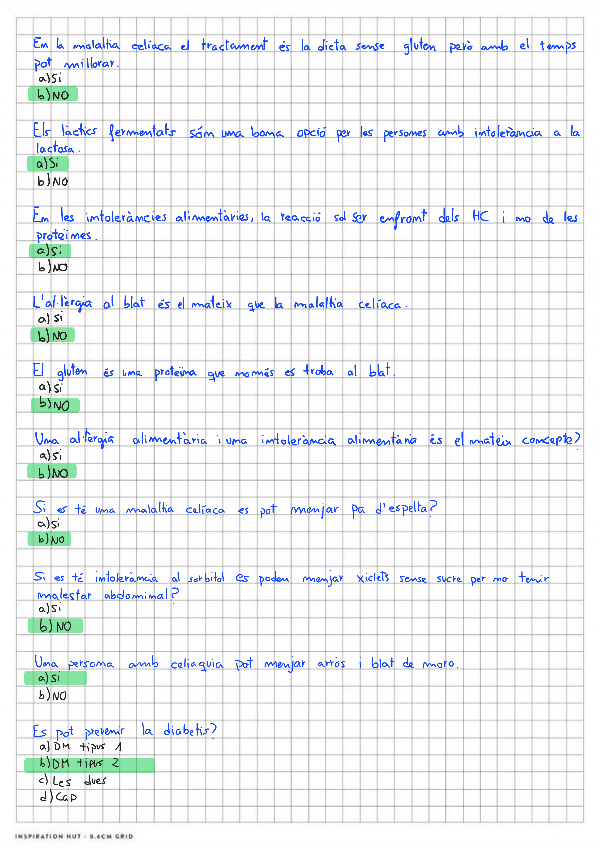 En la malaltia celíaca el tractament és la dieta sense gluten però amb el temps
pot millorar.
a) Si
b) NO
Els làctics fermentats són una bona opció per les persones amb intolerància a la
lactosa.
a) Si
b) NO
En les intoleràncies alimentàries, la reacció sol ser enfront dels HC i no de les
proteïnes.
a) Si
b) NO
L'al·lèrgia al blat és el mateix que la malaltia celíaca.
a) si
b) NO
El gluten és una proteïna que només es troba al blat.
a) si
b) NO
Una al·lèrgia alimentària i una intolerància alimentària és el mateix concepte?
a) si
b) NO
Si es té una malaltia celíaca es pot menjar pa d'espelta?
a) si
b) NO
Si es té intolerància al sorbitol es poden menjar xiclets sense sucre per no tenir
malestar abdominal?
a) si
b) NO
Una persona amb celiaquia pot menjar arròs i blat de moro.
a) si
b) NO
Es pot prevenir la diabetis?
a) DM tipus 1
b) DM tipus 2
c) Les dues
d) Cap
INSPIRATION HUT - 0.6CM GRID